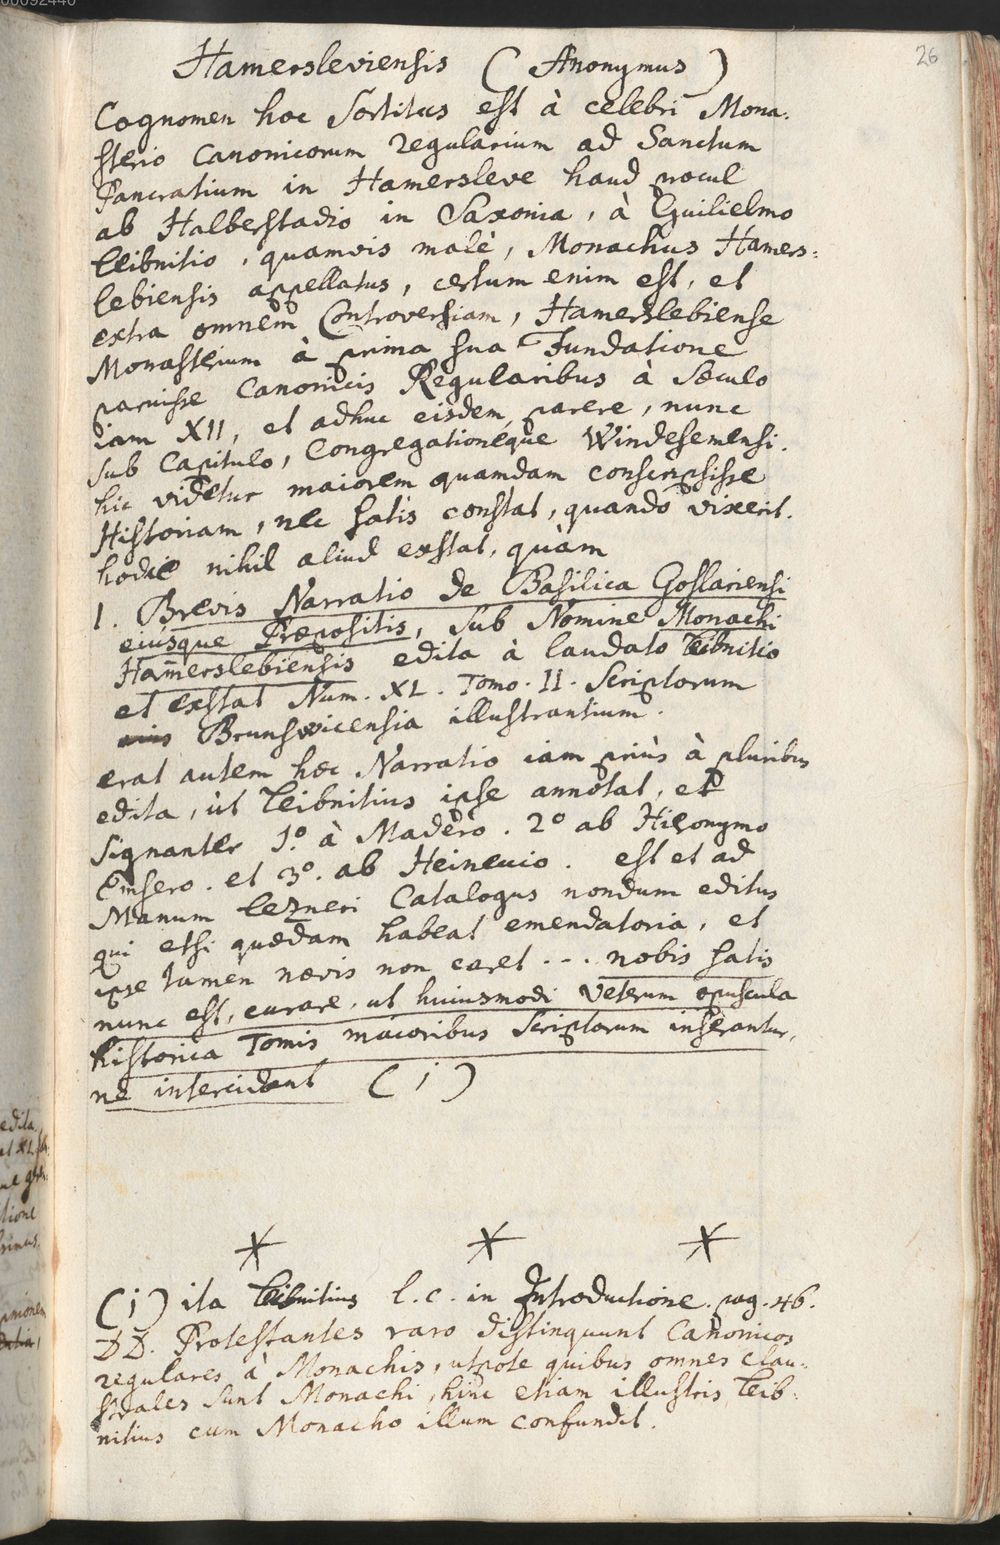 00092440
26
Hamersleviensis (Anonymus)
Cognomen hoc Sortitus est à celebri Mona-
sterio Canonicorum regularium ad Sanctum
Pancratium in Hamersleve haud procul
ab Halberstadio in Saxonia, à Guilielmo
Leibnitio, quamvis malè, Monachus Hamers-
lebiensis appellatus, certum enim est, et
extra omnem Controversiam, Hamerslebiense
Monasterium à prima sua Fundatione
paruisse Canonicis Regularibus à Sæculo
iam XII, et adhuc eisdem parere, nunc
sub Capitulo, Congregationéque Windesemensi.
hic videtur maiorem quamdam conscripsisse
Historiam, nec satis constat, quandò vixerit.
hodie nihil aliud exstat, quàm
1. Brevis Narratio de Basilica Goslariensi
eiusque Præpositis, sub Nomine Monachi
Hamerslebiensis edita à laudato Leibnitio
et exstat Num. XL. Tomo. II. Scriptorum
Brunsvicensia illustrantium.
erat autem hæc Narratio iam priùs à pluribus
edita, ùt Leibnitius ipse annotat, et
signanter 1.º à Maderò. 2º ab Hieronymo
Emsero. et 3º. ab Heineccio. est et ad
Manum Lezneri Catalogus nondum editus
qui etsi quædam habeat emendatoria, et
ipse tamen nævis non caret --- nobis satis
nunc est, curare, ut huiusmodi Veterum opuscula
historica Tomis maioribus Scriptorum inserantur,
ne intercidant (i)
(i) ita Leibnitius l.c. in Introductione. pag. 46.
DD. Protestantes raro distinguunt Canonicos
regulares à Monachis, utpote quibus omnes clau-
strales sunt Monachi, hinc etiam illustris Leib-
nitius cum Monacho illum confundit.